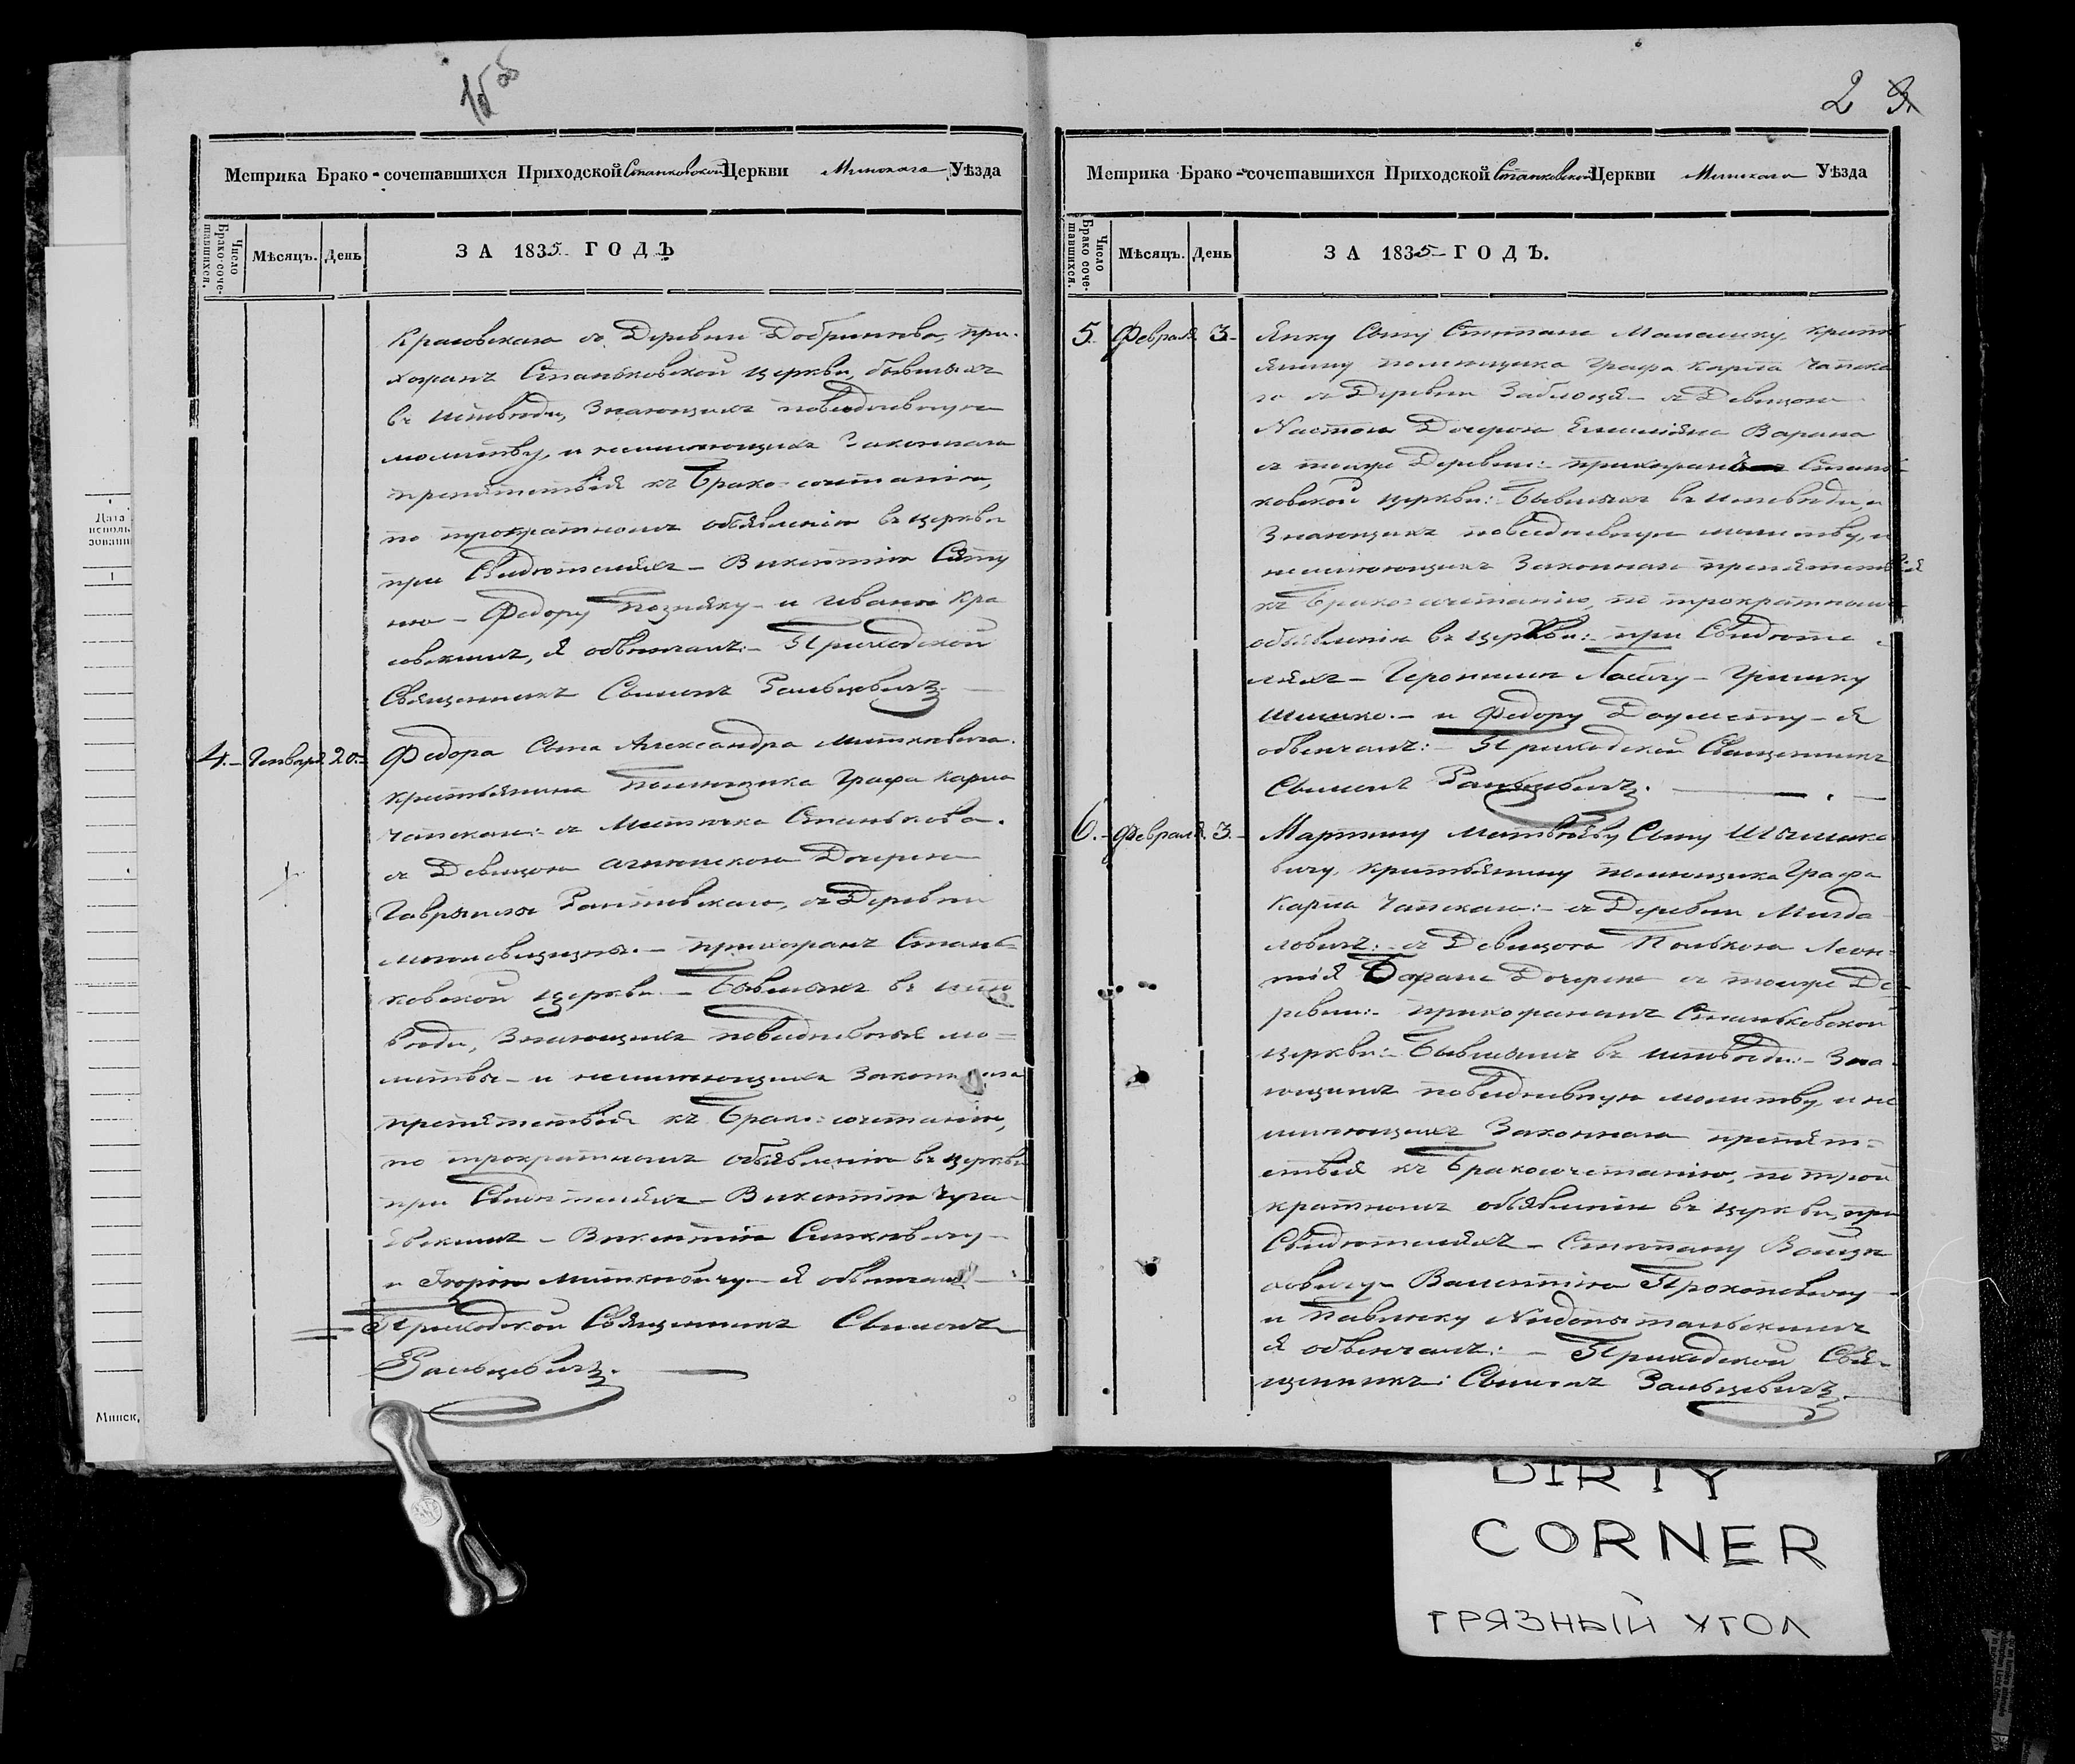 Дата
исполь
зовани
1
Минск,
Метрика Брако-сочетавшихся Приходской Станьковской Церкви Минскаго Уѣзда
Число Брако-соче-тавшихся.
Мѣсяцъ.
День
ЗА 1835 ГОДЪ
Красовскаго съ Деревни Добринева, при-
хожанъ Станьковской церкви, бывшыхъ
въ исповѣди, Знающихъ повседневную
молитву, и неимѣющихъ Законнаго
препятствія къ Брако-сочетанію,
по трократномъ объявленіи въ церкви
при Свидѣтеляхъ – Викентію
Федору Позняку – и Ивану Кра
совскимъ, я обвенчалъ:– Приходской
Священникъ Сымонъ Ральцевичъ.
4.– Генваря 20.– Федора Сына Александра Миткевича
крестьянина Помѣщика Графа Карла
Чапскаго: съ Местечка Станькова.
съ Девицою Дочерью
Гаврыила съ Деревни
прихожанъ Стань=
ковской церкви.– Бывшыхъ въ испо
вѣди, Знающихъ повседневныя мо=
литвы – и неимѣющихъ Законнаго
препятствія къ Брако-сочетанію,
по трократномъ объявленіи въ церкви
при Свидѣтеляхъ – Викентію
Викентію Синкевичу –
и Миткевичу – я обвенчалъ
Приходской Священникъ Сымонъ
Ральцевичъ.
2 3
Метрика Брако-сочетавшихся Приходской Станьковской Церкви Минскаго Уѣзда
Число Брако соче-тавшихся.
Мѣсяцъ.
День
ЗА 1835 ГОДЪ.
5. Февраля 3 – Янку Сыну Степана кресть
янину помещика Графа Карла Чапска
го съ Деревни Заблоця – съ Девицою
Настою Дочерью Емилiяна Барана
съ тойже Деревни:– прихожанъ Стань
ковской церкви:– Бывшыхъ въ исповѣди, и
Знающихъ повседневную молитву, и
неимѣющихъ Законнаго препятствія
къ Брако-сочетанію, по трократномъ
объявленіи въ церкви:– при Свидѣте
ляхъ – Геронима – Гришку
Шишко.– и Федору – я
обвенчалъ:– Приходской Священникъ
Сымонъ Ральцевичъ.
6.– Февраля 3.– Мартину Матвѣяву Сыну
вичу, крестьянину помещика Графа
Карла Чапскаго:– съ Деревни Мигда
ловичъ:– съ Девицою Леон-
тія Дочерью съ тойже Де
ревни:– прихожанамъ Станьковской
церкви:– Бывшымъ въ исповѣди:– Зна
ющимъ повседневную молитву, и не
имѣющихъ Законнаго препят=
ствія къ Бракосочетанію, по трои
кратномъ объявленіи въ церкви, при
Свидѣтеляхъ – Степану
Валентію Прокоповичу –
и Павлюку
я обвенчалъ:– Приходской Свя-
щенникъ: Сымонъ Ральцевичъ.
DIRTY
CORNER
ГРЯЗНЫЙ УГОЛ